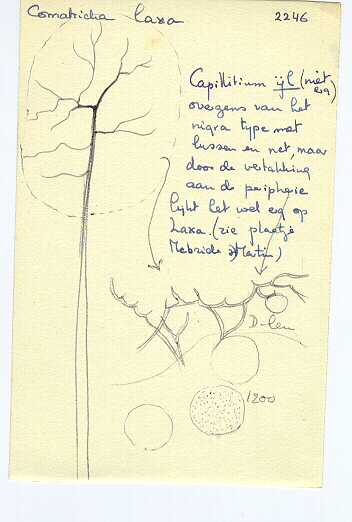 Comatricha laxa
2246
Capillitium ijl (niet
erg)
overigens van het
nigra type met
lussen en net, maar
door de vertakking
aan de peripherie
lijkt het wel erg op
Laxa. (zie plaatje
Mcbride & Martin)
1200